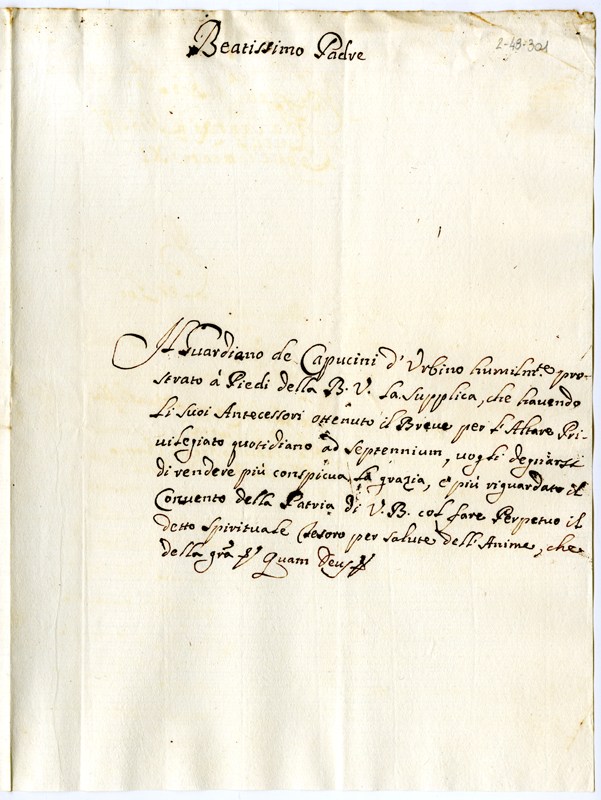 Beatissimo Padre
2-43-301
Il Guardiano de Capucini d'Urbino humilm.te pro-
strato à Piedi della B. V. La supplica, che havendo
li suoi Antecessori ottenuto il Breve per l'Altare Pri-
vilegiato quotidiano ad septennium, vogli degnarsi
di rendere più conspicua la grazia, e più riguardato il
Convento della Patria di V. B. col fare Perpetuo il
detto spirituale Tesoro per salute dell'Anime, che
della gra Quam Deus